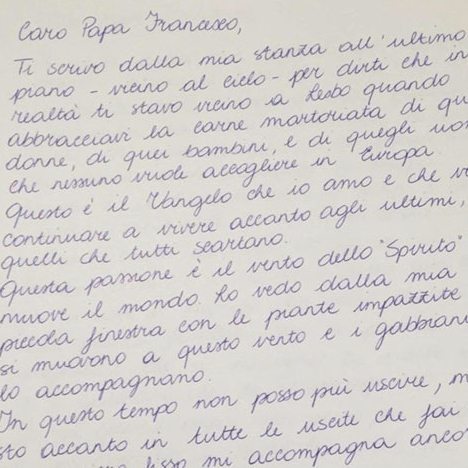 Caro Papa Francesco,
Ti scrivo dalla mia stanza all'ultimo
piano - vicino al cielo - per dirti che in
realtà ti stavo vicino a Lesbo quando
abbracciavi la carne martoriata di qu
donne, di quei bambini, e di quegli uom
che nessuno vuole accogliere in Europa.
Questo è il Vangelo che io amo e che v
continuare a vivere accanto agli ultimi,
quelli che tutti scartano.
Questa passione è il vento dello "Spirito"
muove il mondo. Lo vedo dalla mia
piccola finestra con le piante impazzite
si muovono a questo vento e i gabbiani
lo accompagnano.
In questo tempo non posso più uscire, m
sto accanto in tutte le uscite che fai
mi accompagna anco